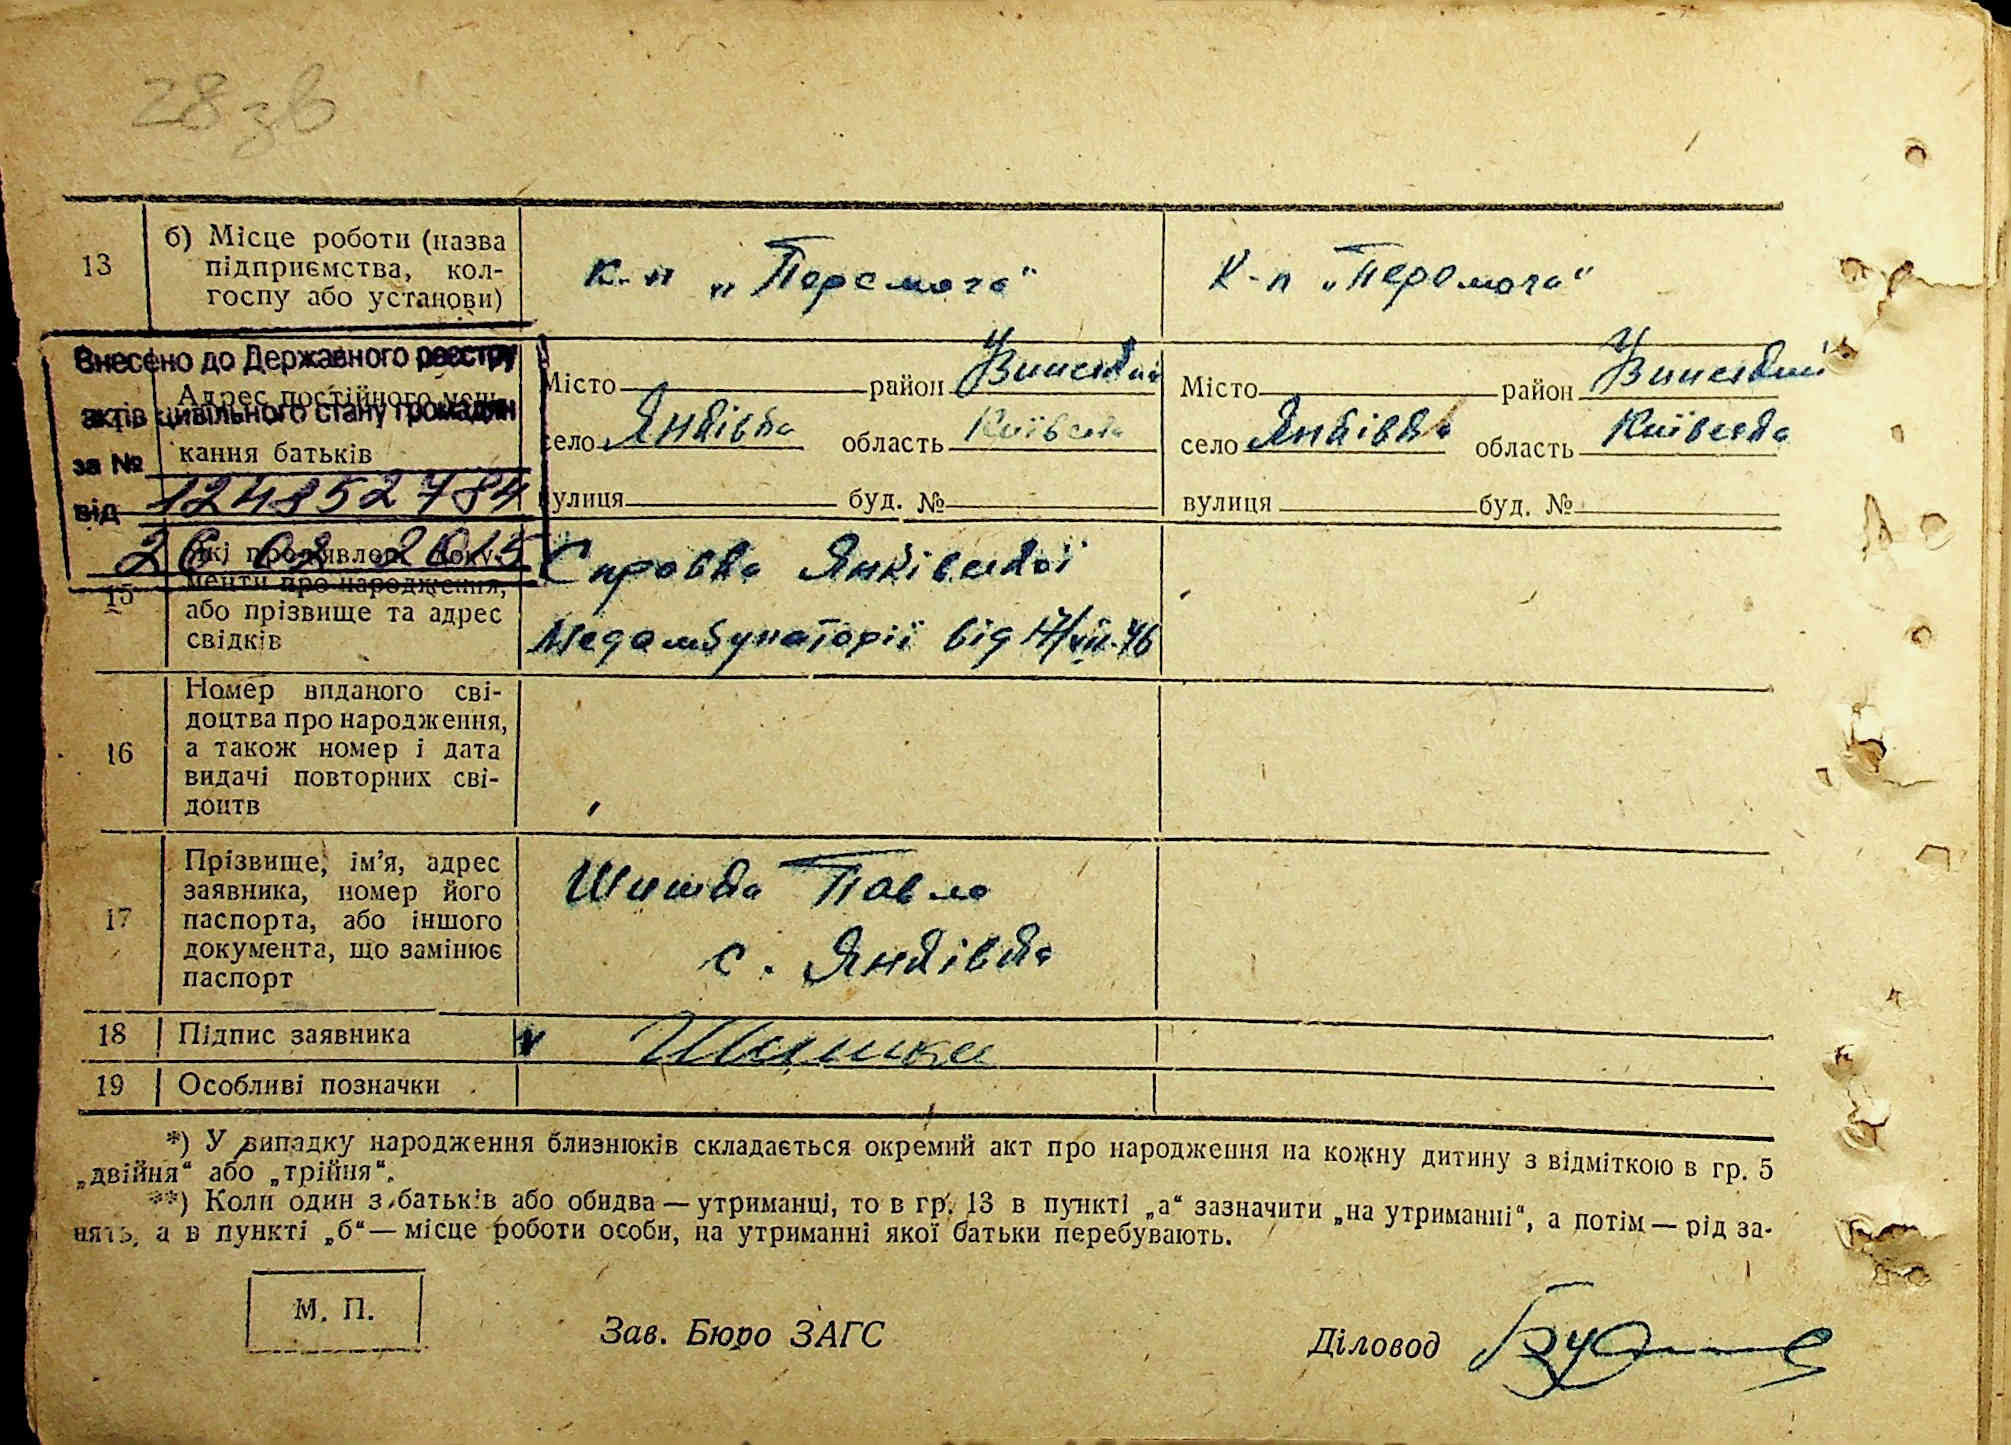 28 зв
13
б) Місце роботи (назва
підприємства, кол-
госпу або установи)
к-п „Перемога"
К-п „Перемога"
Внесено до Державного реєстру
актів цивільного стану громадян
за №
від
124852784
26 02 2015
Адрес постійного меш-
кання батьків
Місто район
село Янківка область Київська
вулиця буд. №
Місто район
село Янківка область Київська
вулиця буд. №
15
Які пред'явлені доку-
менти про народження,
або прізвище та адрес
свідків
Справка Янківської
Медамбулаторії від 17/VII-46
16
Номер виданого сві-
доцтва про народження,
а також номер і дата
видачі повторних сві-
доцтв
17
Прізвище, ім'я, адрес
заявника, номер його
паспорта, або іншого
документа, що замінює
паспорт
Шишка Павло
с. Янківка
18 Підпис заявника
v Шишка
19 Особливі позначки
*) У випадку народження близнюків складається окремий акт про народження на кожну дитину з відміткою в гр. 5
„двійня“ або „трійня“.
**) Коли один з батьків або обидва — утриманці, то в гр. 13 в пункті „а“ зазначити „на утриманні“, а потім — рід за-
нять, а в пункті „б“ — місце роботи особи, на утриманні якої батьки перебувають.
М. П.
Зав. Бюро ЗАГС
Діловод